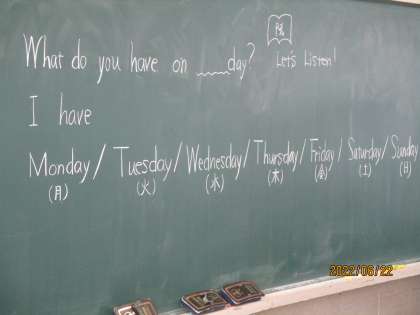 What do you have on ___day? Let's Listen!
I have
Monday / Tuesday / Wednesday / Thursday / Friday / Saturday / Sunday
(月) (火) (水) (木) (金) (土) (日)
2022/06/22